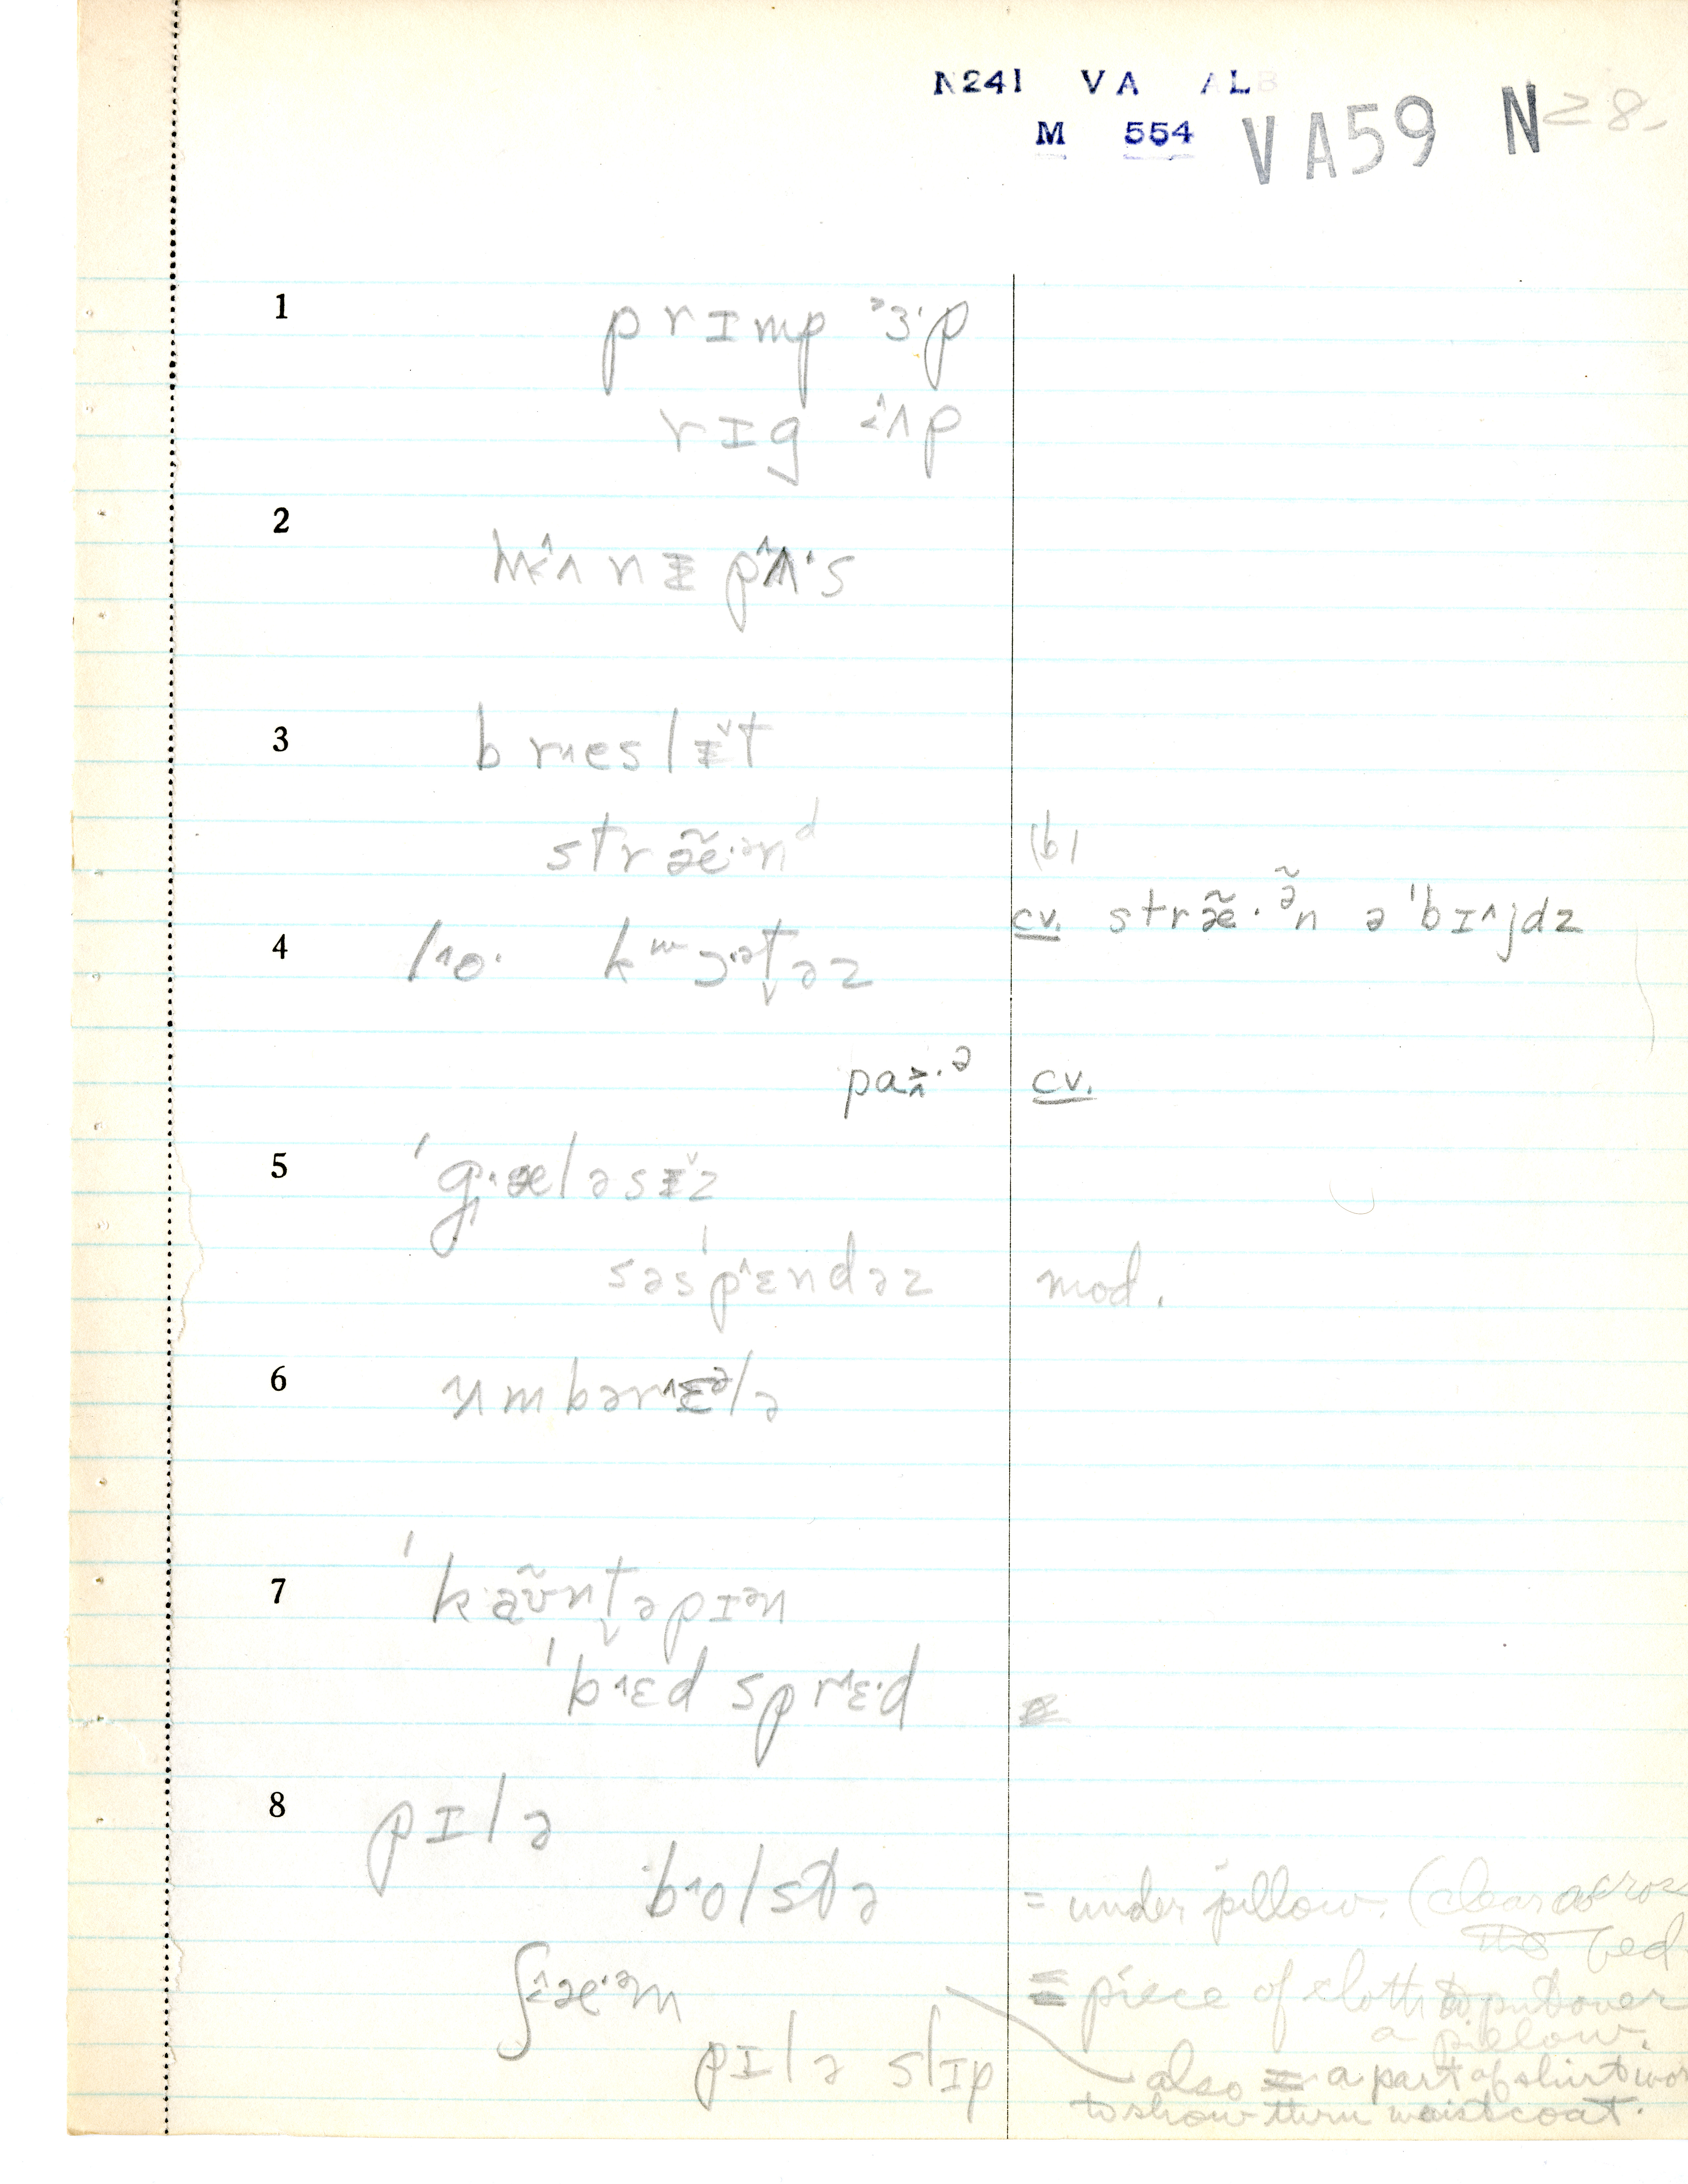 N241 VA ALB
M 554 VA59 N 28
1 prɪmp ˃ɜ·p
rɪg ˂^ʌp
2 h˂^ʌnɪ pʌ^·s
3 br˄esləɪ˅t
stræ̃·ənᵈ (b)
cv. stræ̃·ə̃n ə ˈbɪ^jdz
4 l˄o· kʷɔ·ət̬əz
pa˃˄·ᵊ cv.
5 ˈg˄·æləsɪ˅z
səsˈp˄ɛndəz mod.
6 ʌmbər˄ɛᵊlə
7 ˈkæʊ̃nt̬əpɪən
ˈb˄ɛd spr˄ɛ·d
8 pɪlə
b˄olstə = under pillow. (clear across
the bed
ʃ˂^æ·əm = piece of cloth to put over
a pillow.
pɪlə slɪp also = a part of shirt wor
to show thru waistcoat.